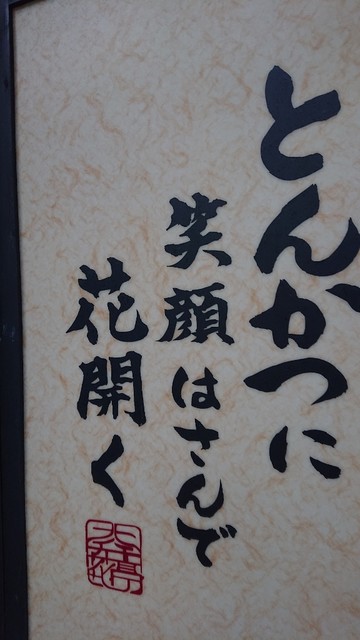 とんかつに
笑顔はさんで
花開く